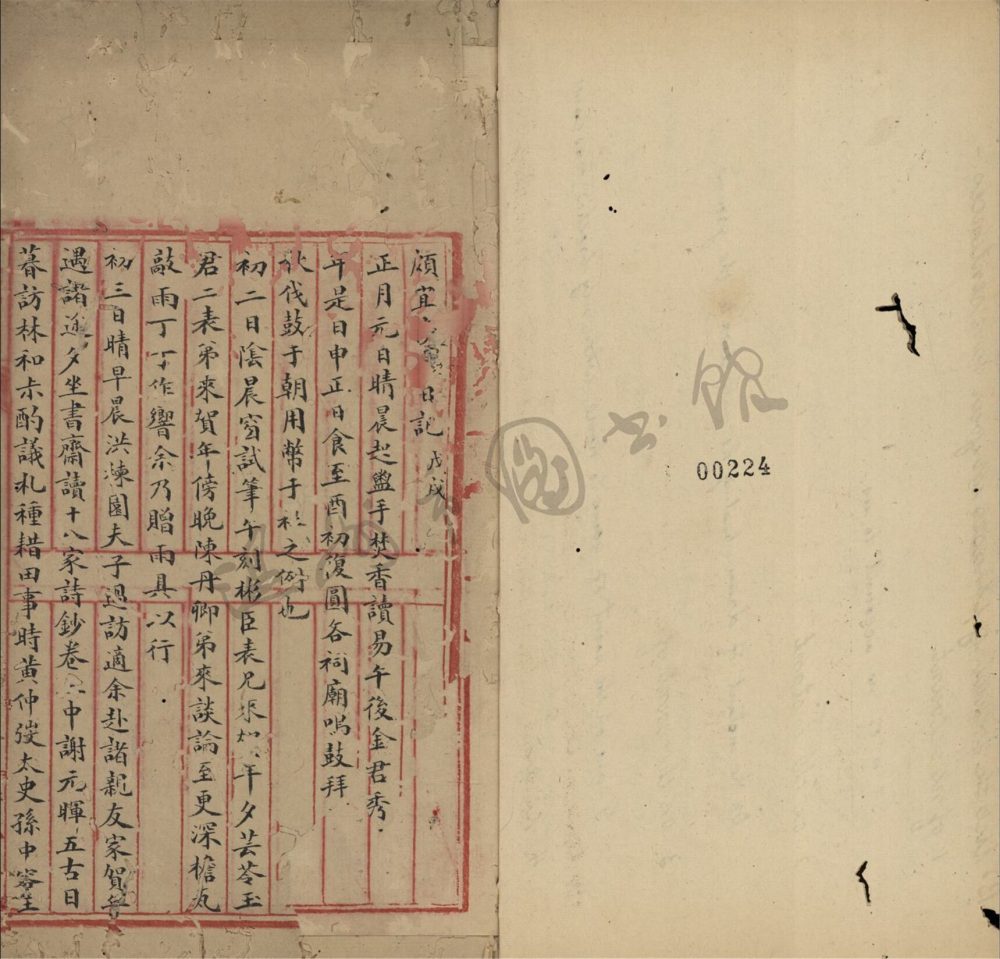 頋宜 日記 戊戌
正月元日晴晨起盥手焚香讀易午後金君秀
年是日申正日食至酉初復圓各祠廟鳴鼓拜
伐鼓于朝用幣于社之例也
初二日陰晨窗試筆午刻彬臣表兄來 年夕芸苓玉
君二表弟來賀年傍晚陳丹卿弟來談論至更深檐瓦
敲雨丁丁作響余乃贈雨具以行
初三日晴早晨洪漱園夫子過訪適余赴諸親友家賀年
遇諸途夕坐書齋讀十八家詩鈔卷 中謝元暉五古日
暮訪林和尗酌議札種耤田事時黃仲弢太史孫中容
00224
圖書館